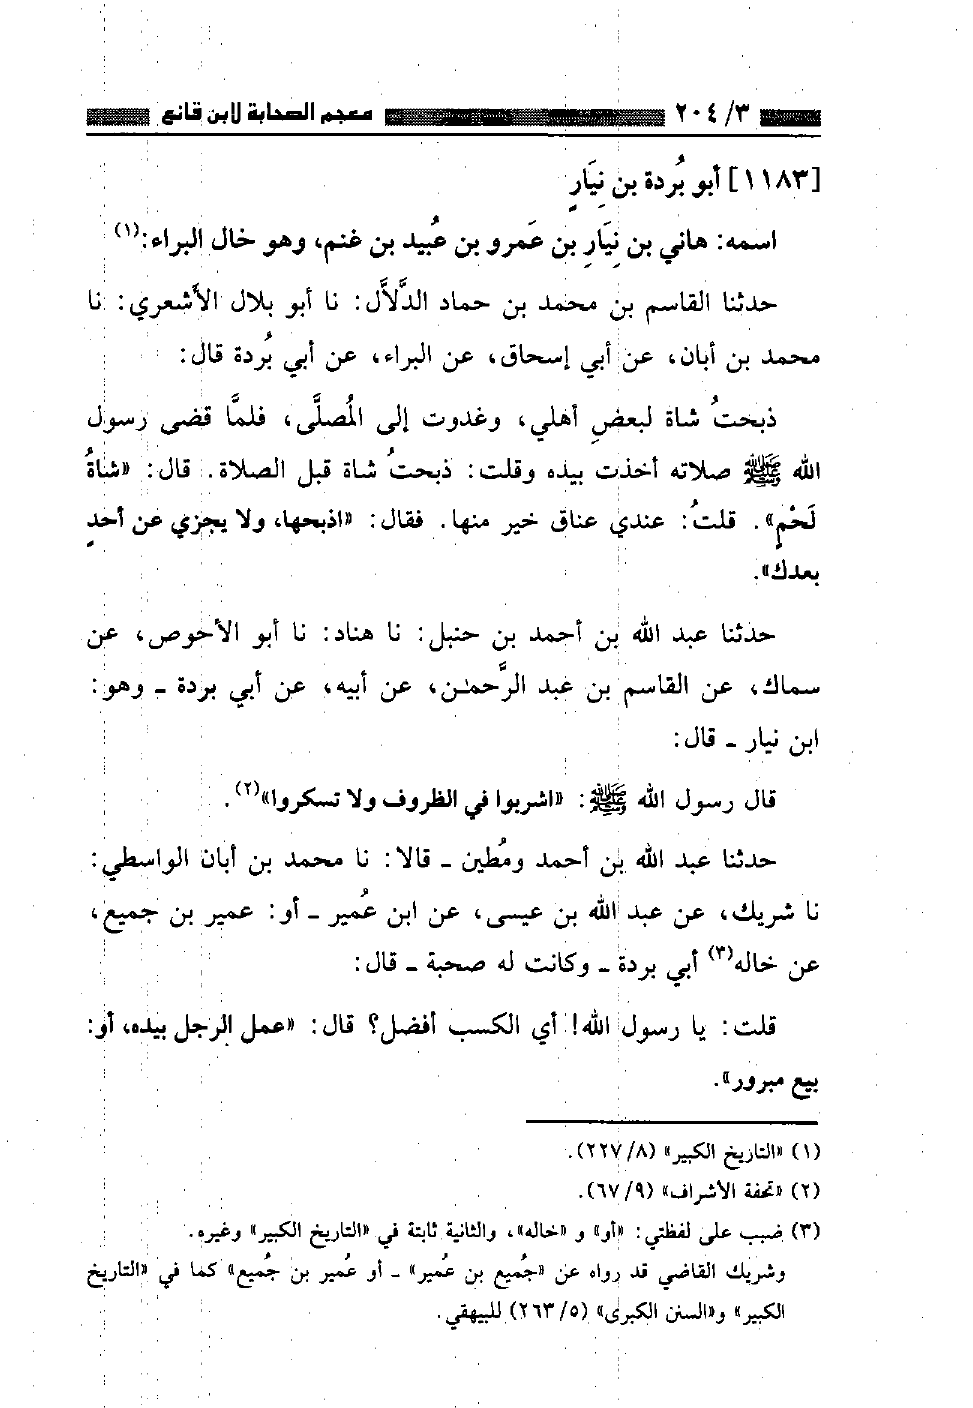 ٣/ ٢٠٤ معجم الصحابة لابن قانع
[١١٨٣] أبو بُردة بن نِيَارٍ
اسمه: هاني بن نِيَارِ بن عَمرو بن عُبيد بن غنم، وهو خال البراء:(١)
حدثنا القاسم بن محمد بن حماد الدَّلاَّل: نا أبو بلال الأشعري: نا
محمد بن أبان، عن أبي إسحاق، عن البراء، عن أبي بُردة قال:
ذبحتُ شاة لبعضِ أهلي، وغدوت إلى المُصلَّى، فلمَّا قضى رسول
الله ﷺ صلاته أخذت بيده وقلت: ذبحتُ شاة قبل الصلاة. قال: «شاةُ
لَحْمٍ». قلتُ: عندي عناق خير منها. فقال: «اذبحها، ولا يجزي عن أحدٍ
بعدك».
حدثنا عبد الله بن أحمد بن حنبل: نا هناد: نا أبو الأحوص، عن
سماك، عن القاسم بن عبد الرَّحمـٰن، عن أبيه، عن أبي بردة ـ وهو:
ابن نيار ـ قال:
قال رسول الله ﷺ: «اشربوا في الظروف ولا تسكروا»(٢).
حدثنا عبد الله بن أحمد ومُطين ـ قالا: نا محمد بن أبان الواسطي:
نا شريك، عن عبد الله بن عيسى، عن ابن عُمير ـ أو: عمير بن جميع،
عن خاله(٣) أبي بردة ـ وكانت له صحبة ـ قال:
قلت: يا رسول الله! أي الكسب أفضل؟ قال: «عمل الرجل بيده، أو:
بيع مبرور».
(١) «التاريخ الكبير» (٨/ ٢٢٧).
(٢) «تحفة الأشراف» (٩/ ٦٧).
(٣) ضبب على لفظتي: «أو» و «خاله»، والثانية ثابتة في «التاريخ الكبير» وغيره.
وشريك القاضي قد رواه عن «جُميع بن عُمير» ـ أو عُمير بن جُميع» كما في «التاريخ
الكبير» و«السنن الكبرى» (٥/ ٢٦٣) للبيهقي.